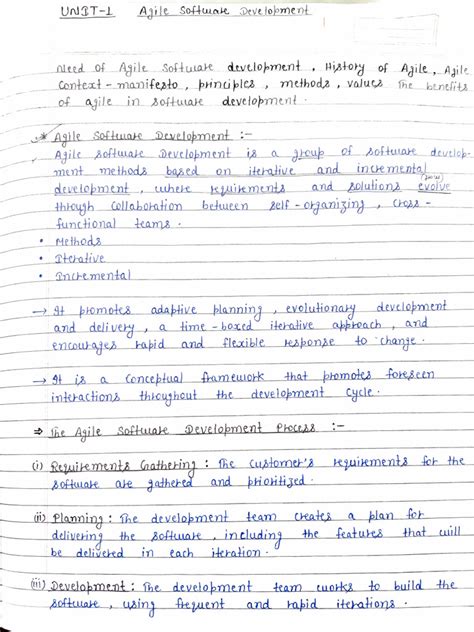 UNIT-1 Agile Software Development
Need of Agile Software development, History of Agile, Agile
Context - manifesto, principles, methods, values The benefits
of agile in software development.
* Agile Software Development :-
Agile Software Development is a group of software develop-
ment methods based on iterative and incremental
development, where requirements and solutions evolve
through collaboration between self-organizing, cross-
functional teams.
• Methods
• Iterative
• Incremental
→ It promotes adaptive planning, evolutionary development
and delivery, a time-boxed iterative approach, and
encourages rapid and flexible response to change.
→ It is a conceptual framework that promotes foreseen
interactions throughout the development cycle.
⇒ The Agile Software Development Process :-
(i) Requirements Gathering : The customer's requirements for the
software are gathered and prioritized.
(ii) Planning : The development team creates a plan for
delivering the software, including the features that will
be delivered in each iteration.
(iii) Development : The development team works to build the
software, using frequent and rapid iterations.